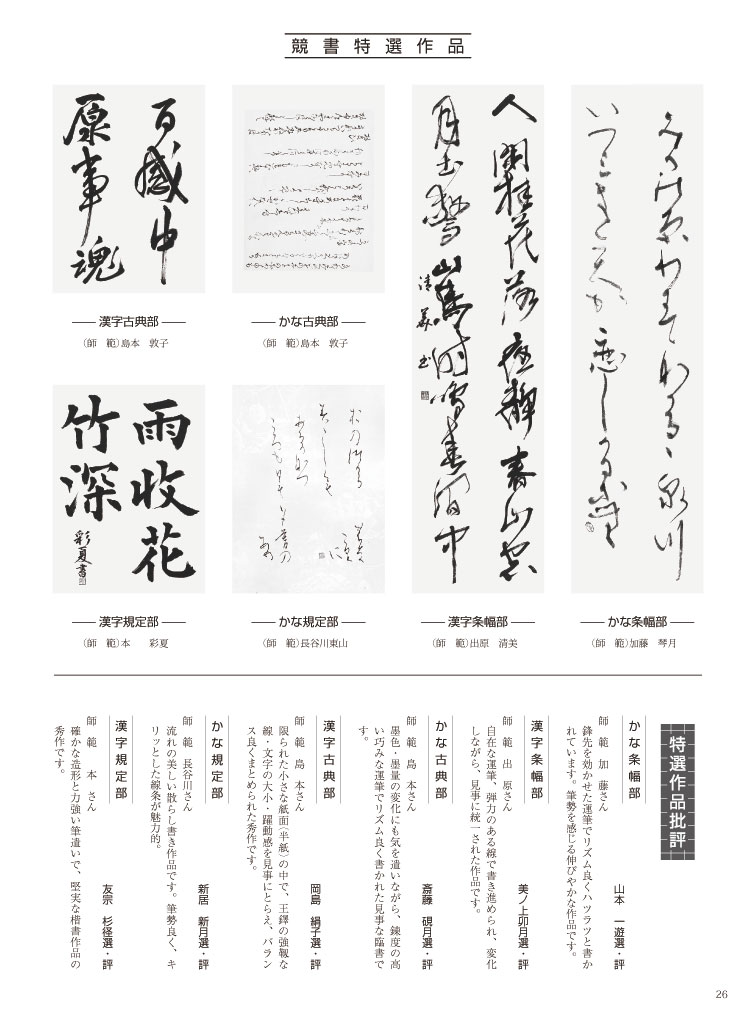 競書特選作品
百感中
原事魂
漢字古典部
（師　範）島本　敦子
かな古典部
（師　範）島本　敦子
人閑桂花落夜静春山空
月出驚山鳥時鳴春澗中
清美書
漢字条幅部
（師　範）出原　清美
みかの原わきてなかるゝ泉川
いつみきとてか恋しかるらむ
かな条幅部
（師　範）加藤　琴月
雨收花
竹深
彩夏書
漢字規定部
（師　範）本　　彩夏
かな規定部
（師　範）長谷川東山
特選作品批評
かな条幅部
山本　一遊選・評
師　範　加　藤さん
鋒先を効かせた運筆でリズム良くハツラツと書か
れています。筆勢を感じる伸びやかな作品です。
漢字条幅部
美ノ上卯月選・評
師　範　出　原さん
自在な運筆、弾力のある線で書き進められ、変化
しながら、見事に統一された作品です。
かな古典部
斎藤　硯月選・評
師　範　島　本さん
墨色・墨量の変化にも気を遣いながら、錬度の高
い巧みな運筆でリズム良く書かれた見事な臨書で
す。
漢字古典部
岡島　絹子選・評
師　範　島　本さん
限られた小さな紙面（半紙）の中で、王鐸の強靱な
線・文字の大小・躍動感を見事にとらえ、バラン
ス良くまとめられた秀作です。
かな規定部
新居　新月選・評
師　範　長谷川さん
流れの美しい散らし書き作品です。筆勢良く、キ
リッとした線条が魅力的。
漢字規定部
友宗　杉径選・評
師　範　本　さん
確かな造形と力強い筆遣いで、堅実な楷書作品の
秀作です。
26